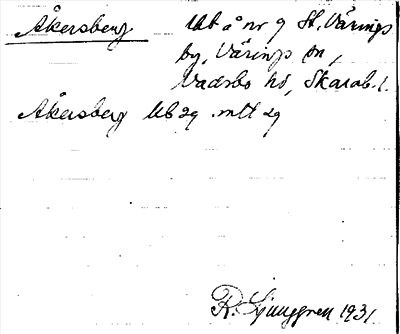 Åkersberg Ub å nr 9 St. Värings
by, Värings sn,
Vadsbo hd, Skarab. l.
Åkersberg Ub 29 mtl 29
R. Ljunggren 1931